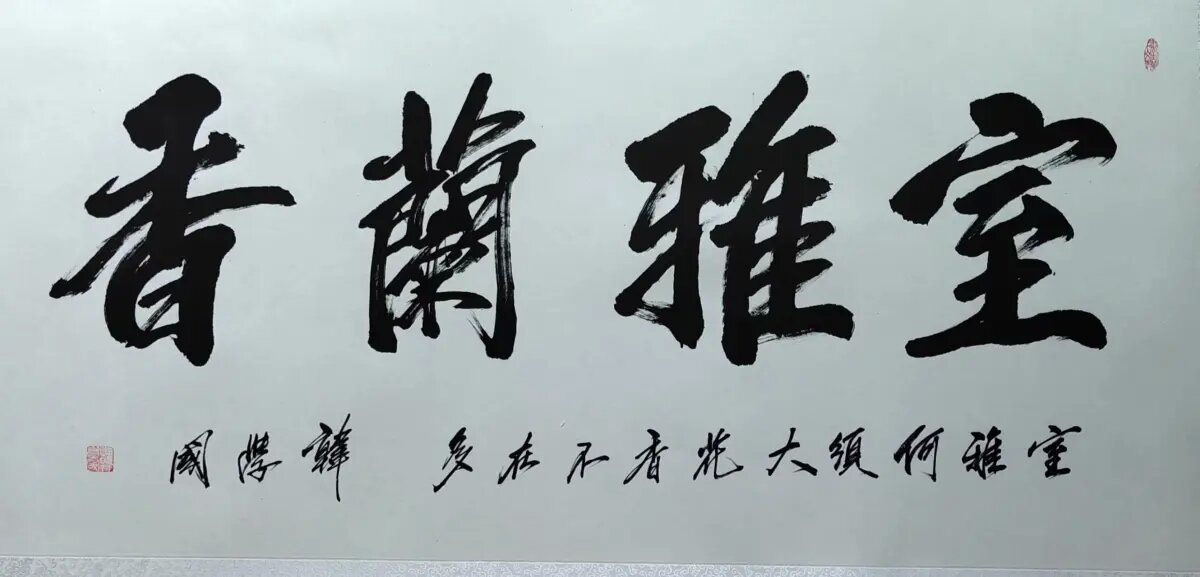 室雅蘭香
室雅何須大花香不在多 韓學國